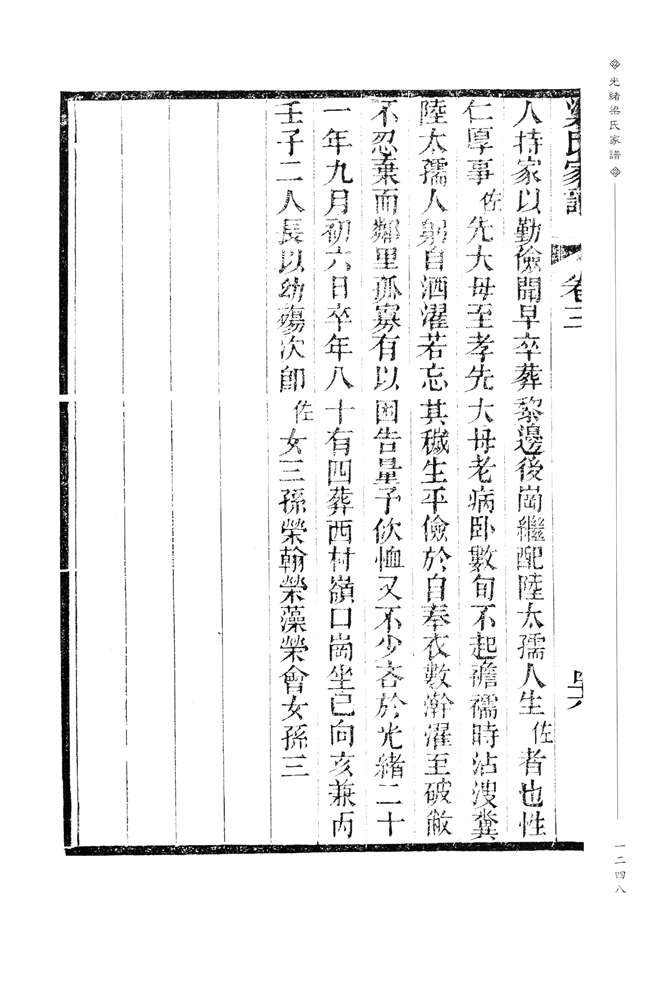 光緒梁氏家譜
一二四八
梁氏家譜 卷三
人持家以勤儉聞早卒葬黎邊後崗繼配陸太孺人生佐者也性
仁厚事佐先大母至孝先大母老病臥數旬不起襜襦時沾溲糞
陸太孺人躬自洒濯若忘其穢生平儉於自奉衣數澣濯至破敝
不忍棄而鄰里孤寡有以困告量予佽恤又不少吝於光緒二十
一年九月初六日卒年八十有四葬西村嶺口崗坐巳向亥兼丙
壬子二人長以幼殤次即佐女三孫榮翰榮藻榮會女孫三